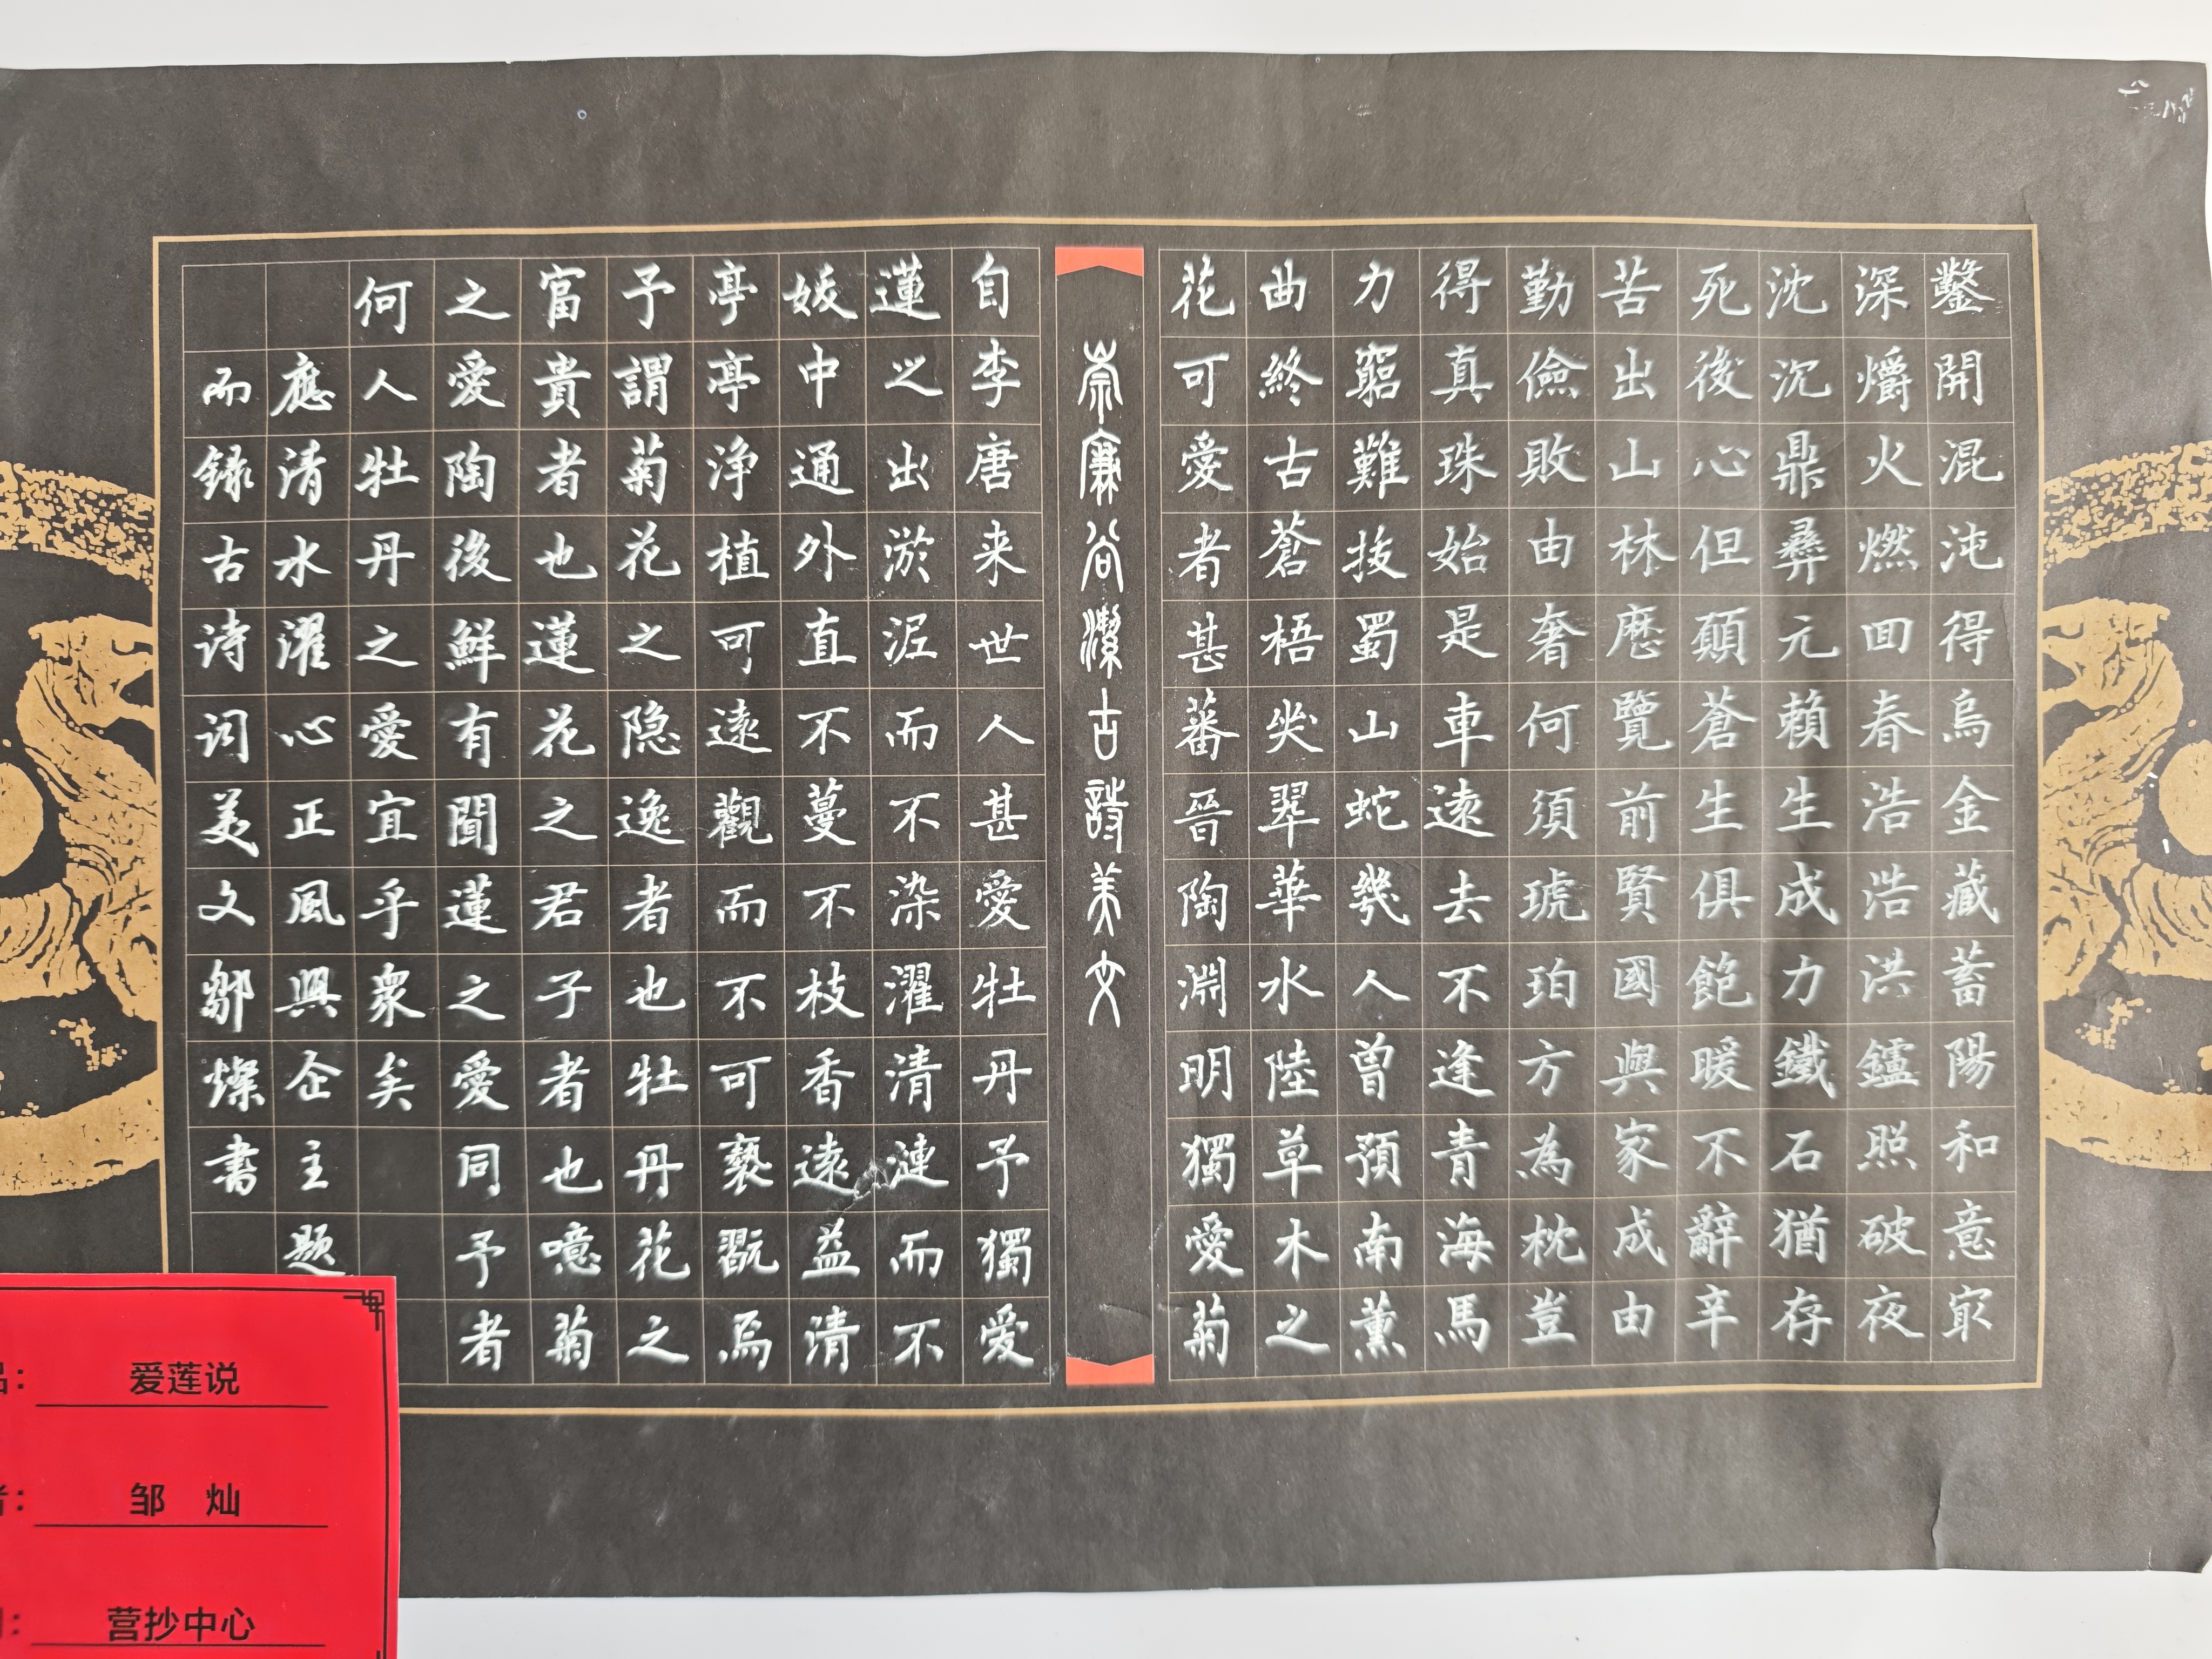 鑿開混沌得烏金藏蓄陽和意㝡
深爝火燃回春浩浩洪鑪照破夜
沈沉鼎彝元賴生成力鐵石猶存
死後心但願蒼生俱飽暖不辭辛
苦出山林歷覽前賢國與家成由
勤儉敗由奢何須琥珀方為枕豈
得真珠始是車遠去不逢青海馬
力窮難拔蜀山蛇幾人曾預南薰
曲終古蒼梧哭翠華水陸草木之
花可愛者甚蕃晉陶淵明獨愛菊
崇廉尚潔古詩美文
自李唐来世人甚愛牡丹予獨愛
蓮之出淤泥而不染濯清漣而不
妖中通外直不蔓不枝香遠益清
亭亭净植可遠觀而不可褻翫焉
予謂菊花之隐逸者也牡丹花之
富貴者也蓮花之君子者也噫菊
之愛陶後鮮有聞蓮之愛同予者
何人牡丹之愛宜乎衆矣
應清水濯心正風興企主题
而録古诗词美文鄒燦書
品：爱莲说
者：邹 灿
营抄中心